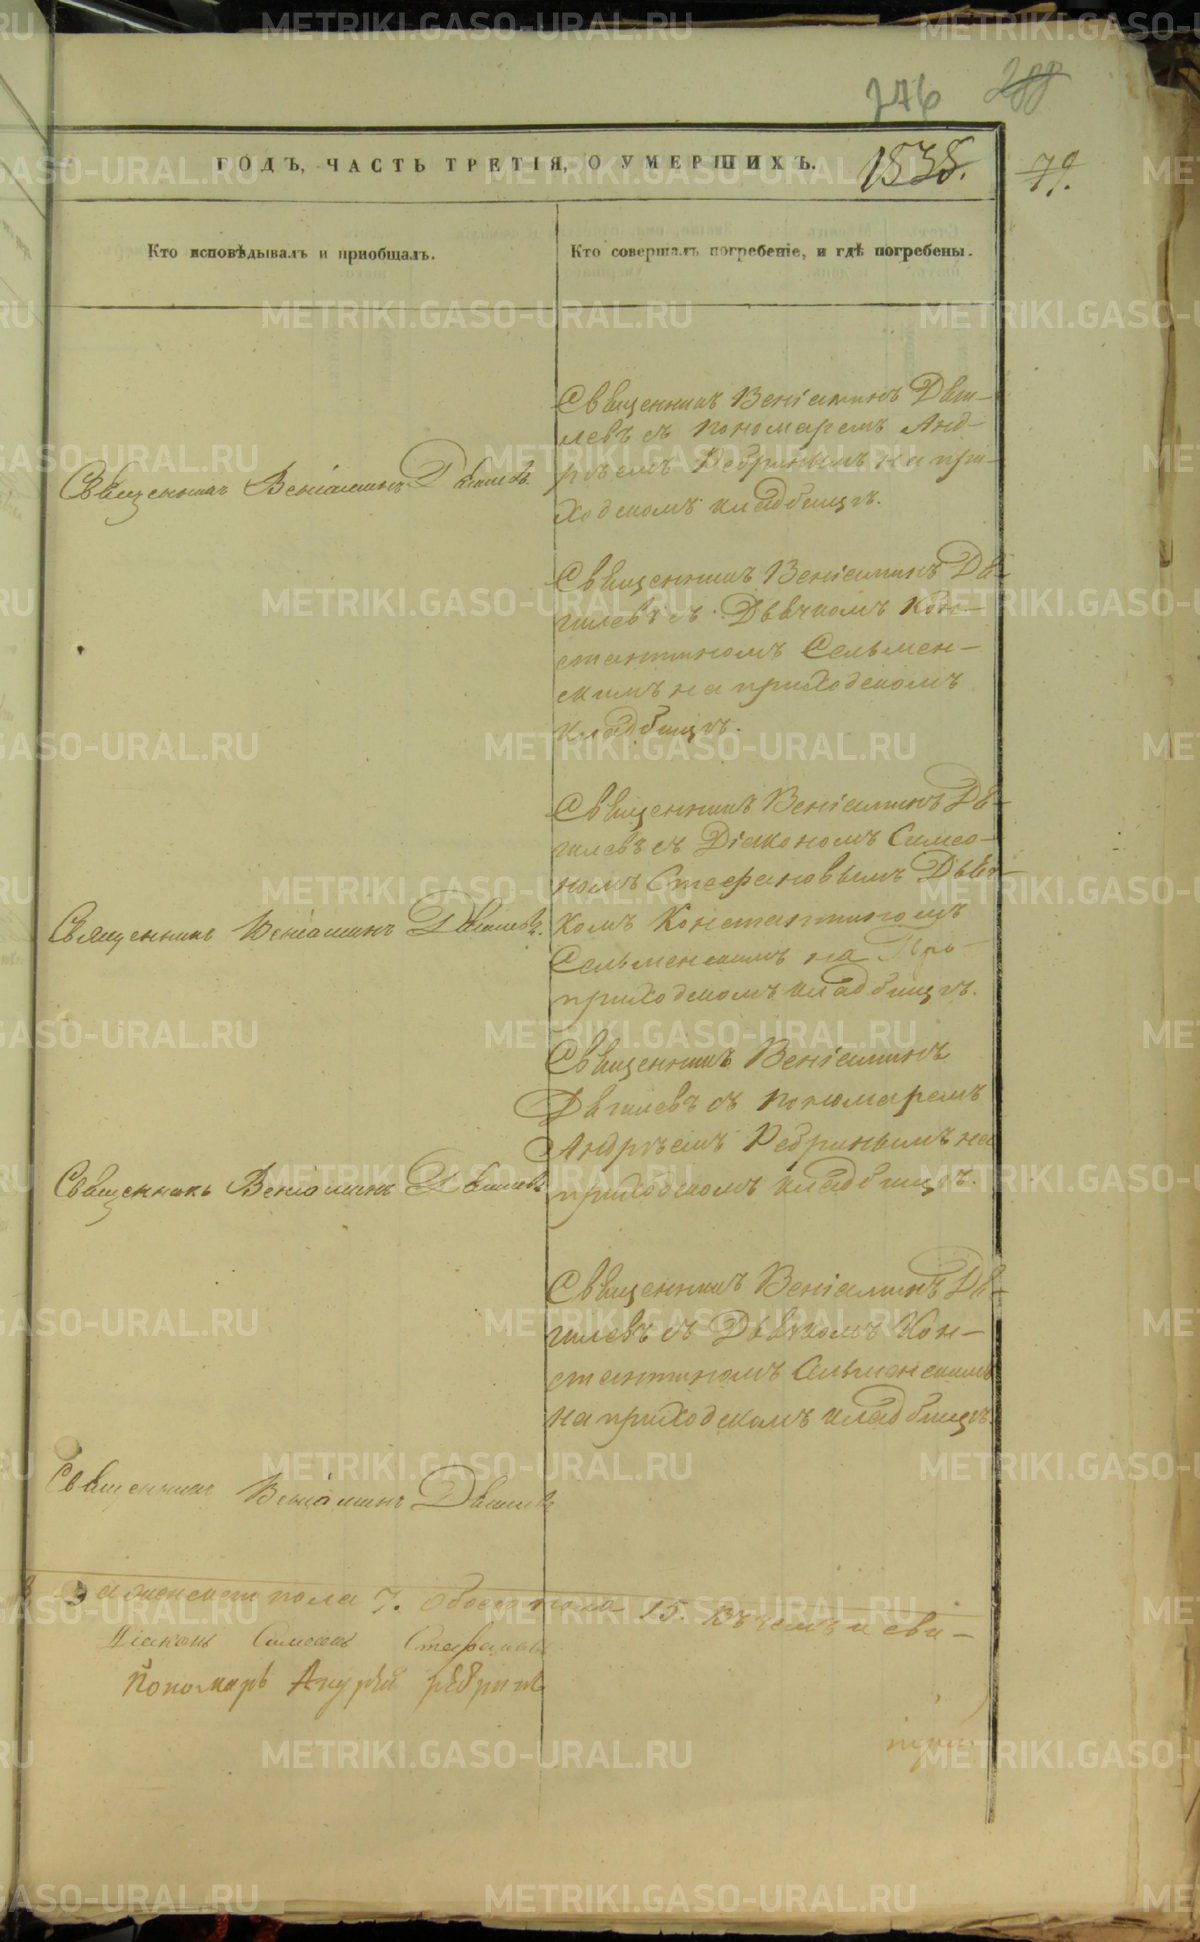 746 288
ГОДЪ, ЧАСТЬ ТРЕТІЯ, О УМЕРШИХЪ. 1838. 79.
Кто исповѣдывалъ и пріобщалъ.
Кто совершалъ погребеніе, и гдѣ погребены.
Священникъ Веніаминъ Двигилевъ.
Священникъ Веніаминъ Дви-
гилевъ съ пономаремъ Анд-
рѣемъ Ребринымъ на при-
ходскомъ кладбищѣ.
Священникъ Веніаминъ Дви-
гилевъ съ Дьячкомъ Кон-
стантиномъ Сельмен-
скимъ на приходскомъ
кладбищѣ.
Священникъ Веніаминъ Двигилевъ.
Священникъ Веніаминъ Дви-
гилевъ съ Діакономъ Симео-
номъ Стефановымъ Дьяч-
комъ Константиномъ
Сельменскимъ на
приходскомъ кладбищѣ.
Священникъ Веніаминъ Двигилевъ
Священникъ Веніаминъ
Двигилевъ съ пономаремъ
Андрѣемъ Ребринымъ на
приходскомъ кладбищѣ.
Священникъ Веніаминъ Двигилевъ
Священникъ Веніаминъ Дви-
гилевъ съ Дьячкомъ Кон-
стантиномъ Сельменскимъ
на приходскомъ кладбищѣ
а женска пола 7. обоего пола 15. Въ чемъ и сви-
Діаконъ Симеонъ Стефановъ
Пономарь Андрей Ребринъ
METRIKI.GASO-URAL.RU